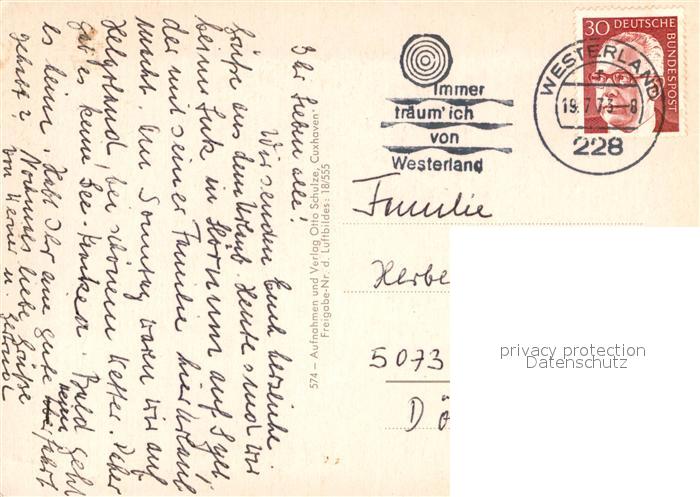 Ihr Lieben alle!
Wir senden Euch herzliche
Grüße aus dem Urlaub. Heute sind wir
beim Luk in Hörnum auf Sylt
der mit seiner Familie hier Urlaub
macht. Am Sonntag waren wir auf
Helgoland, bei schönem Wetter. Daher
gab es keine See-Kranken. Bald geht
es heim. Habt Ihr eine gute Heimfahrt
gehabt? Nochmals liebe Grüße
von Herm. u. Gertrud
574 – Aufnahmen und Verlag Otto Schulze, Cuxhaven
Freigabe-Nr. d. Luftbildes: 18/555
Immer
träum' ich
von
Westerland
WESTERLAND
19.7.73-8
228
30 DEUTSCHE
BUNDESPOST
Familie
Herbe
5073
Dö
privacy protection
Datenschutz